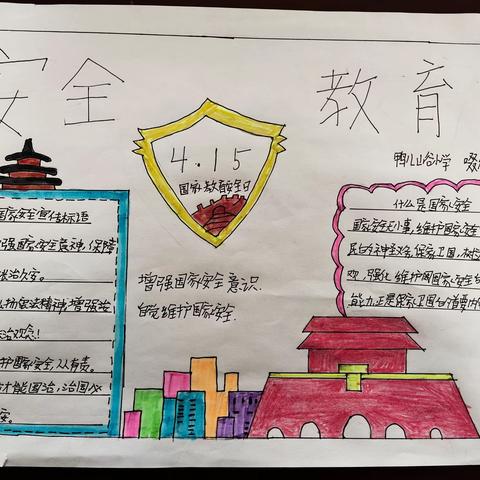 安全 教育
4.15
国家教育安全日
鸭儿山谷小学
国家安全宣传标语
强国家安全精神,保障
长治久安。
弘扬宪法精神,增强法
治观念!
护国家安全,人人有责。
才能国治,治国必
安。
增强国家安全意识.
自觉维护国家安全.
什么是国家安全
国家安全无小事,维护国家安全
民的神圣义务,保家卫国,树
观,强化维护国家安全的
能力,正是保家卫国的首要内